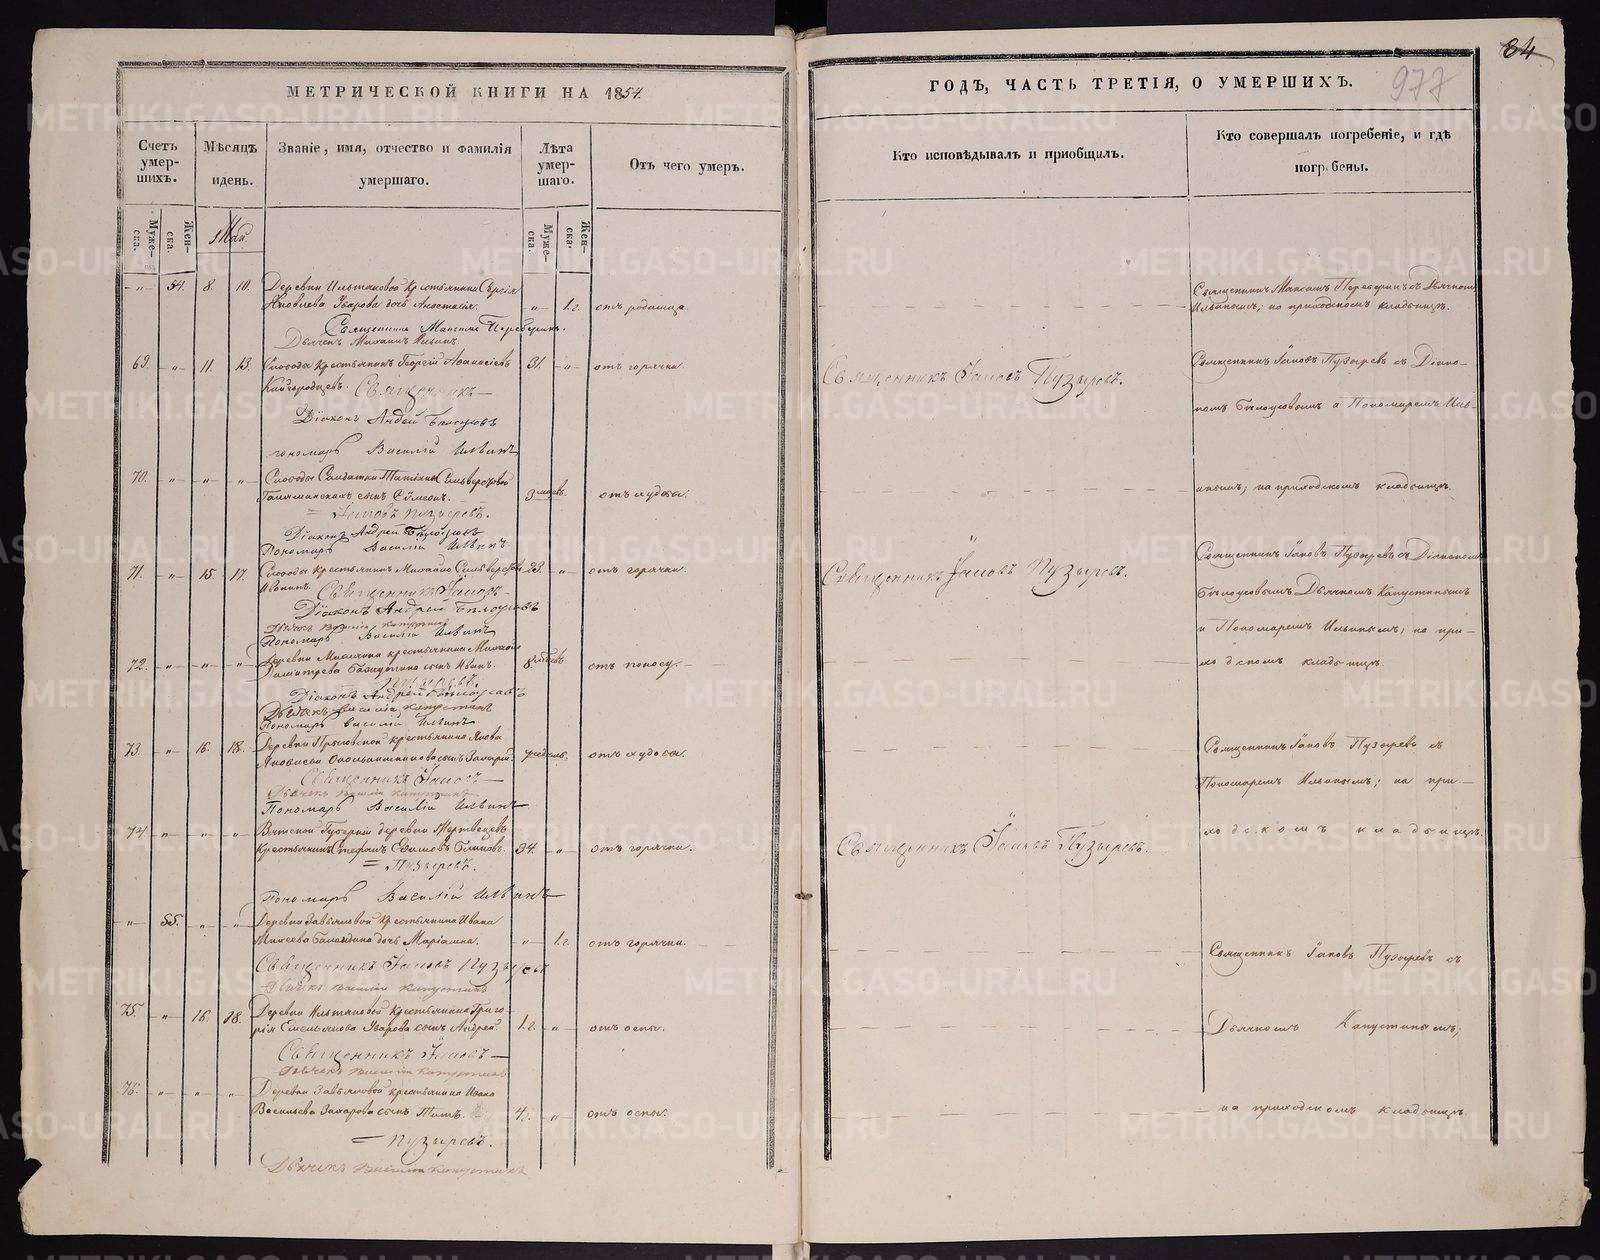 МЕТРИЧЕСКОЙ КНИГИ НА 1854.
Счетъ умер-шихъ.
Мѣсяцъ идень.
Званіе, имя, отчество и фамилія умершаго.
Лѣта умер-шаго.
Отъ чего умеръ.
Муже-ска.
Жен-ска.
Май.
Муже-ска.
Жен-ска.
54. 8. 10. Деревни крестьянина Сергія
Яковлева Уварова дочь Анастасія. 1.г. отъ родимца.
Священникъ Максимъ
Дьячекъ Михаилъ Ильинъ.
11. 13. Слободы крестьянинъ Георгій Аѳанасіевъ 31. отъ горячки.
Кайгородцевъ. Священникъ
Діаконъ Андрей Бѣлоусовъ
пономарь Василій Ильинъ
70. Слободы Солдатки
сынъ Сѵмеонъ. отъ худобы.
Іаковъ Пузыревъ.
Діаконъ Андрей Бѣлоусовъ
Пономарь Василій Ильинъ
71. 15. 17. Слободы крестьянинъ Михайло отъ горячки.
Священникъ Іаковъ
Діаконъ Андрей Бѣлоусовъ
Пономарь Василій Ильинъ
72. Деревни крестьянина
сынъ Иванъ. отъ поносу.
Діаконъ Андрей Бѣлоусовъ
Дьячекъ Василій Капустинъ
Пономарь Василій Ильинъ
73 16. 18. Деревни крестьянина Якова
сынъ Захарій. отъ худобы.
Священникъ Іаковъ
Дьячекъ Василій Капустинъ
Пономарь Василій Ильинъ
74 Вятской Губерніи деревни
крестьянинъ Стефанъ 34. отъ горячки.
Пузыревъ.
Пономарь Василій Ильинъ
55. Деревни Завьяловой крестьянина Ивана
дочь Маріамна. 1.г. отъ горячки.
Священникъ Іаковъ Пузыревъ
Дьячекъ Василій Капустинъ
75. 16. 18. Деревни крестьянина Григо-
рія Емельянова Уварова сынъ Андрей. 1.г. отъ оспы.
Священникъ Іаковъ
Дьячекъ Василій Капустинъ
76. Деревни Завьяловой крестьянина Ивана
Васильева Захарова сынъ Титъ. 4. отъ оспы.
Пузыревъ.
Дьячекъ Василій Капустинъ
84
977
ГОДЪ, ЧАСТЬ ТРЕТІЯ, О УМЕРШИХЪ.
Кто исповѣдывалъ и пріобщилъ.
Кто совершалъ погребеніе, и гдѣ погребены.
Священникъ Максимъ съ Дьячкомъ
Ильинымъ; на приходскомъ кладбищѣ.
Священникъ Іаковъ Пузыревъ.
Священникъ Іаковъ Пузыревъ съ Діако-
номъ Бѣлоусовымъ и Пономаремъ Иль-
инымъ; на приходскомъ кладбищѣ.
Священникъ Іаковъ Пузыревъ.
Священникъ Іаковъ Пузыревъ съ Діакономъ
Бѣлоусовымъ Дьячкомъ Капустинымъ
и Пономаремъ Ильинымъ; на при-
ходскомъ кладбищѣ.
Священникъ Іаковъ Пузыревъ съ
Пономаремъ Ильинымъ; на при-
ходскомъ кладбищѣ.
Священникъ Іаковъ Пузыревъ.
Священникъ Іаковъ Пузыревъ съ
Дьячкомъ Капустинымъ;
на приходскомъ кладбищѣ.
METRIKI.GASO-URAL.RU